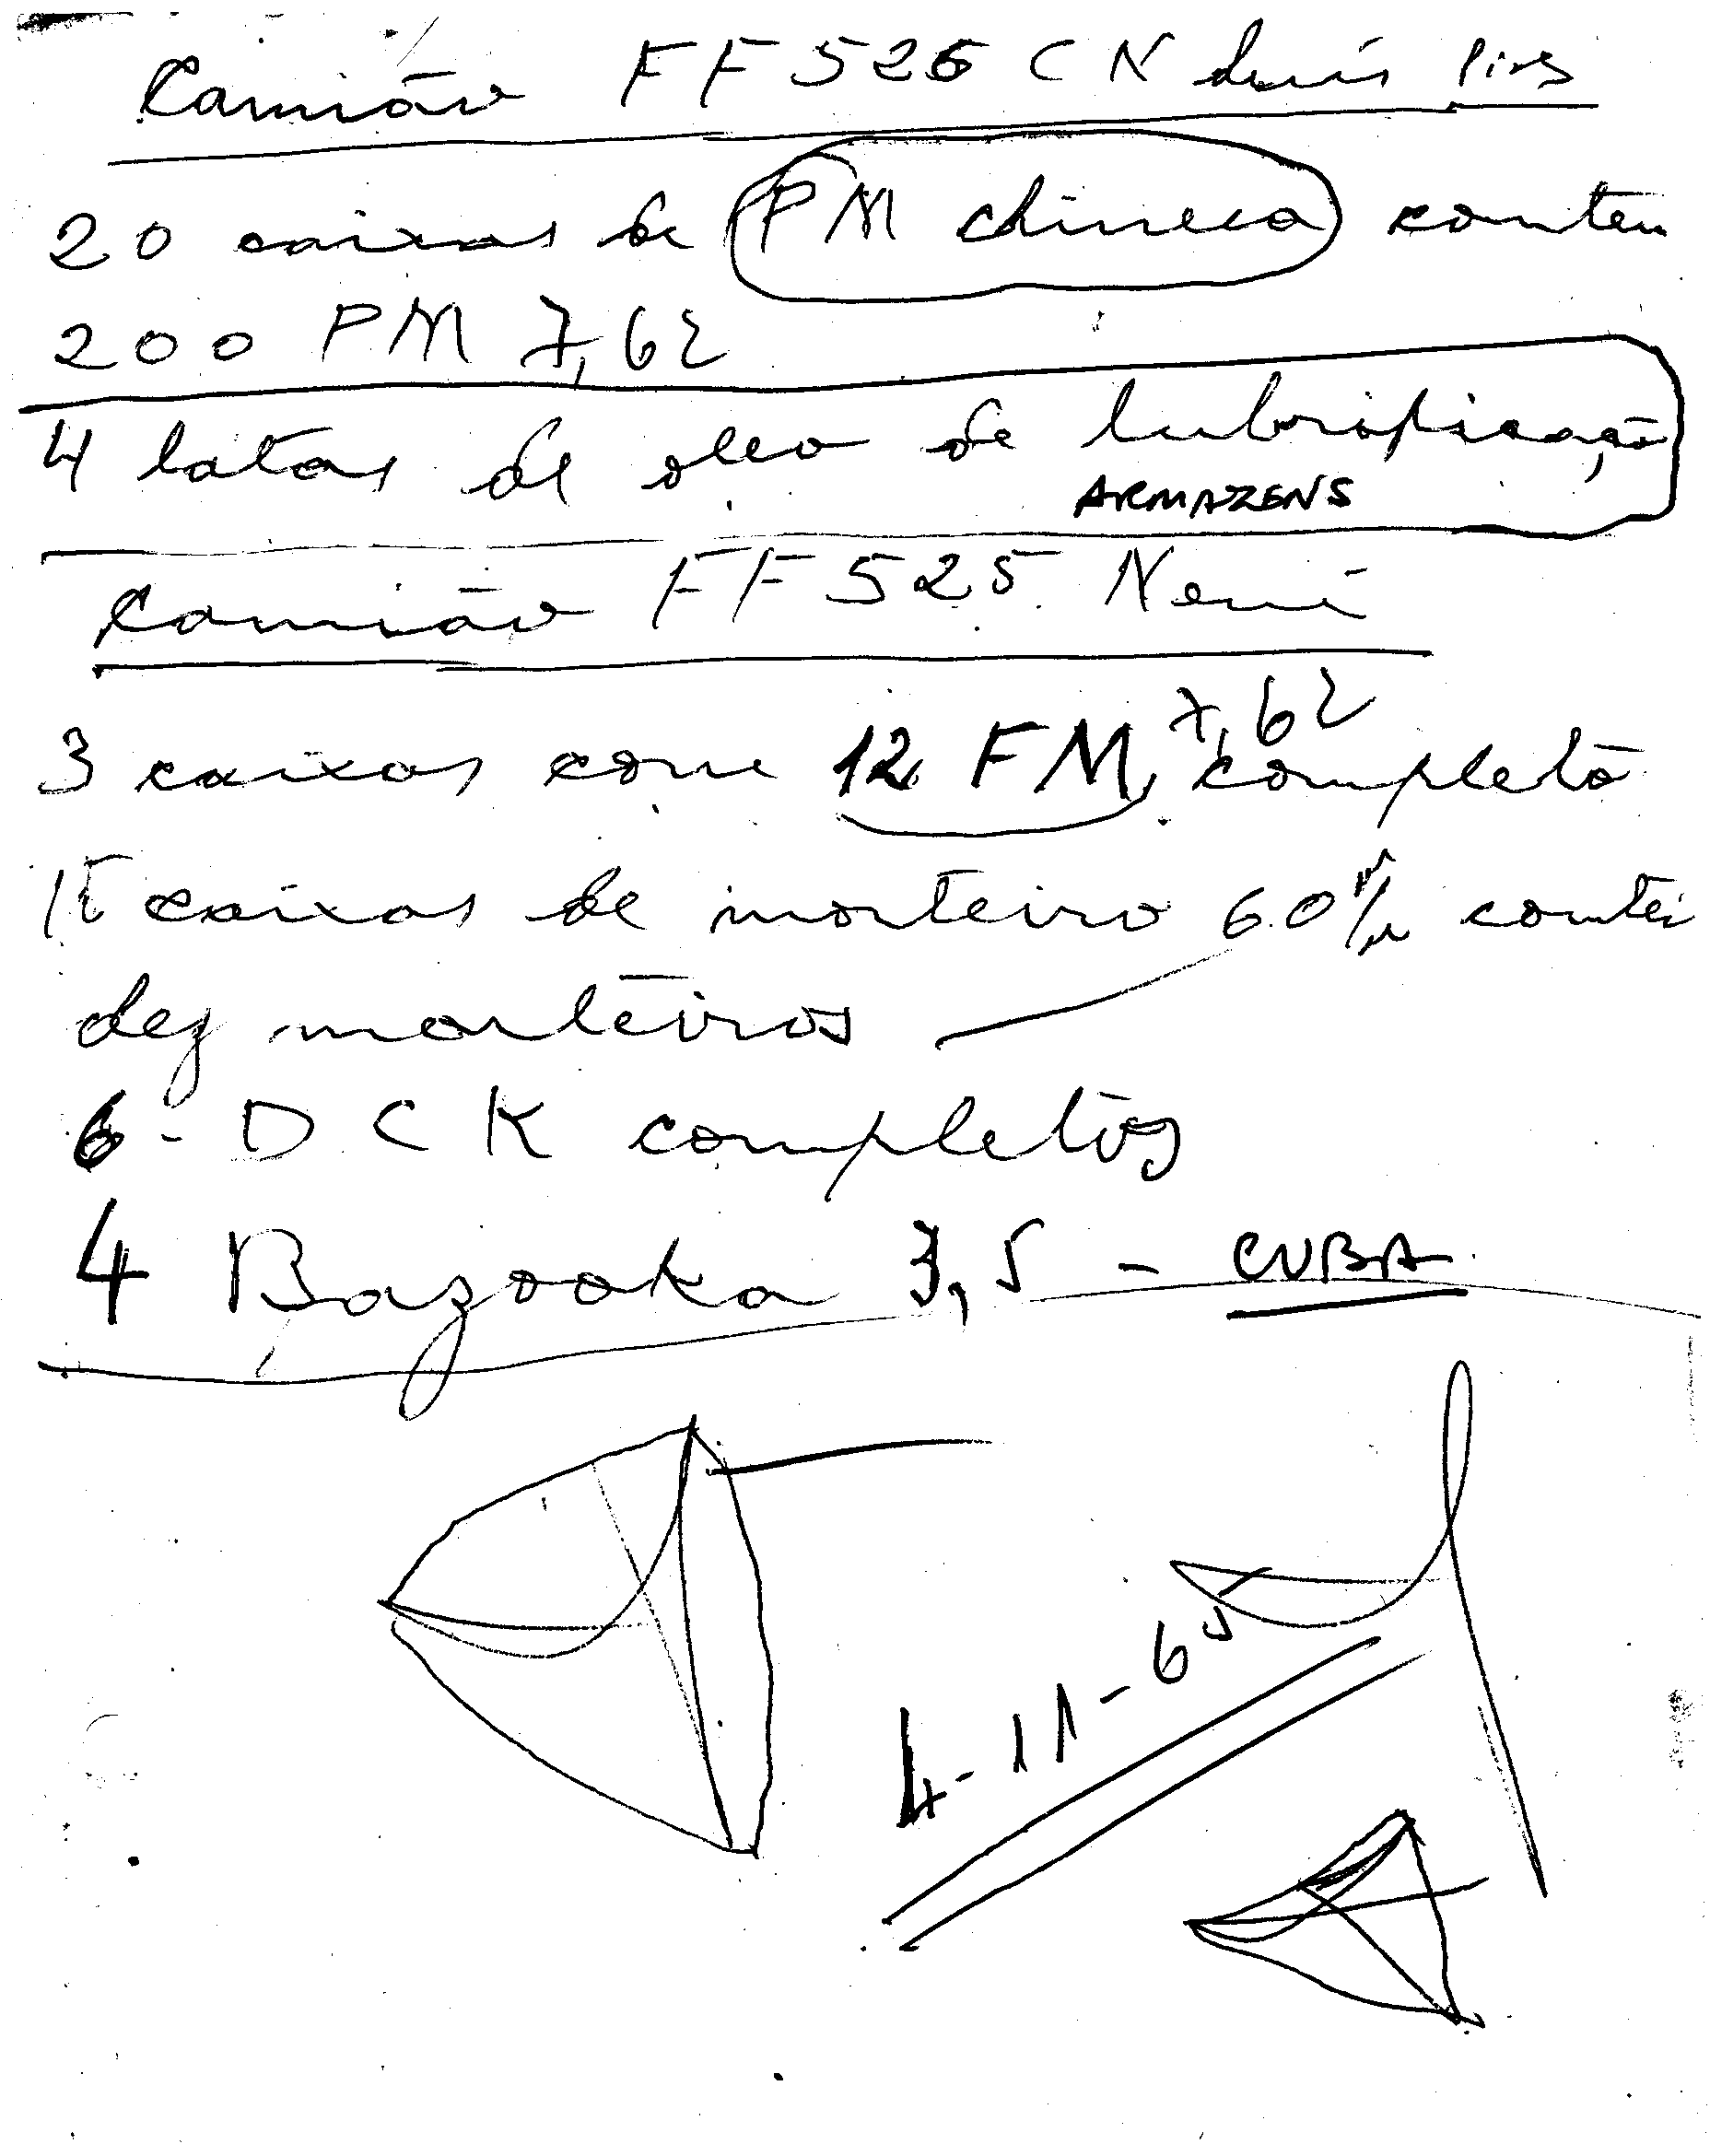 Camião FF 526 CN Luis Pires
20 caixas de PM chinesa conten
200 PM 7,62
4 latas de oleo de lubrificação
ARMAZENS
Camião FF 525 Nené
7,62
3 caixas com 12 FM, completo
caixas de morteiro 60 m/m conten
dez morteiros
6 - DCK completos
4 Bazooka 3,5 - CUBA
4-11-65